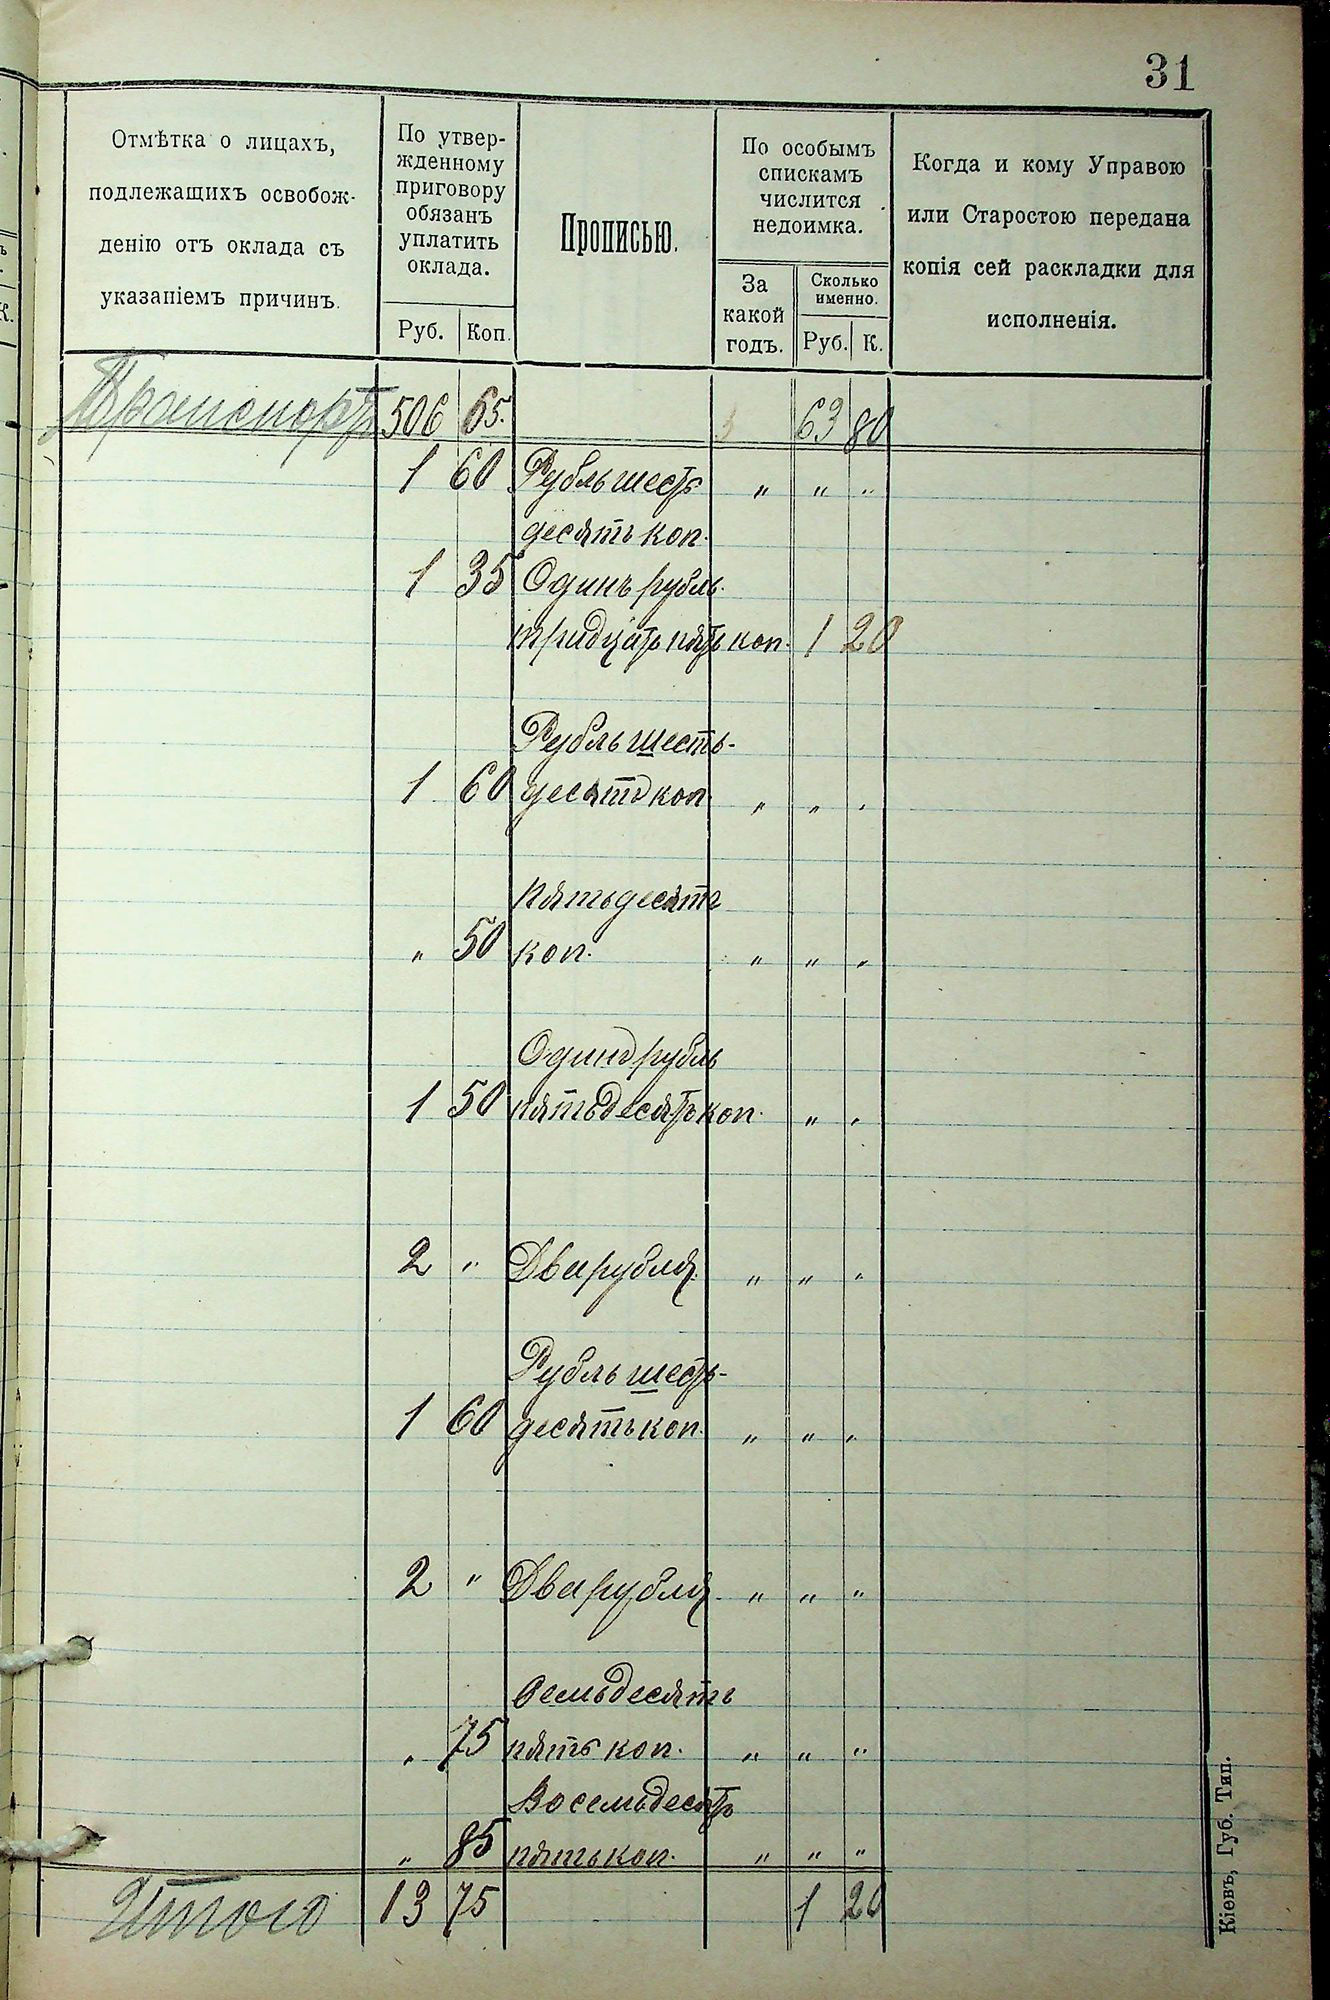 31
Отмѣтка о лицахъ,
подлежащихъ освобож-
денію отъ оклада съ
указаніемъ причинъ.
По утвер-
жденному
приговору
обязанъ
уплатить
оклада.
Руб. Коп.
Прописью.
По особымъ
спискамъ
числится
недоимка.
За
какой
годъ.
Сколько
именно.
Руб. К.
Когда и кому Управою
или Старостою передана
копія сей раскладки для
исполненія.
Транспортъ 506 65. 63 80
1 60 Рубль шесть " " "
десять коп.
1 35 Одинъ рубль
тридцать пять коп. 1 20
Рубль шесть-
1 60 десятъ коп. " " "
Пятьдесятъ
" 50 коп. " " "
Одинъ рубль
1 50 пятьдесятъ коп. " "
2 " Два рубля. " " "
Рубль шесть-
1 60 десять коп. " " "
2 " Два рубля " " "
Семьдесять
" 75 пять коп. " " "
Восемьдесятъ
" 85 пять коп. " " "
Итого 13 75 1 20
Кіевъ, Губ. Тип.